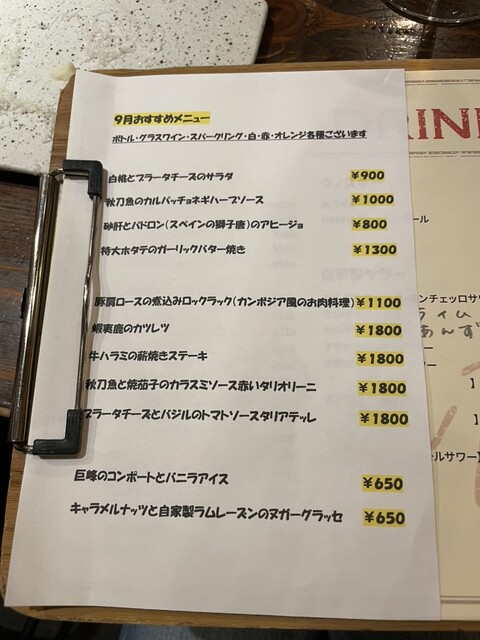 9月おすすめメニュー
ボトル・グラスワイン・スパークリング・白・赤・オレンジ各種ございます
白桃とブラータチーズのサラダ ¥900
秋刀魚のカルパッチョネギハーブソース ¥1000
砂肝とパドロン(スペインの獅子唐)のアヒージョ ¥800
特大ホタテのガーリックバター焼き ¥1300
豚肩ロースの煮込みロックラック(カンボジア風のお肉料理) ¥1100
蝦夷鹿のカツレツ ¥1800
牛ハラミの薪焼きステーキ ¥1800
秋刀魚と焼茄子のカラスミソース赤いタリオリーニ ¥1800
ブラータチーズとバジルのトマトソースタリアテッレ ¥1800
巨峰のコンポートとバニラアイス ¥650
キャラメルナッツと自家製ラムレーズンのヌガーグラッセ ¥650
RIN
ール
ンチェッロサワ
ライム
あんず
ー
サワー
】
】
ルサワー】